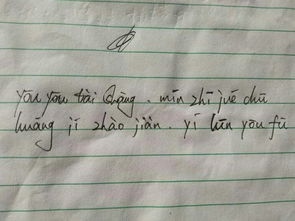 yōu yōu tài cháng . mín zhī jué chū
huáng jī zhào jiàn . yī lún yǒu fú